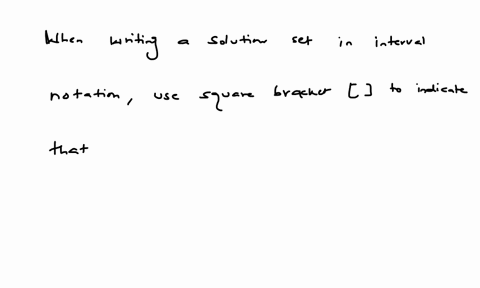 When writing a solution set in interval
notation, use square bracket [] to indicate
that